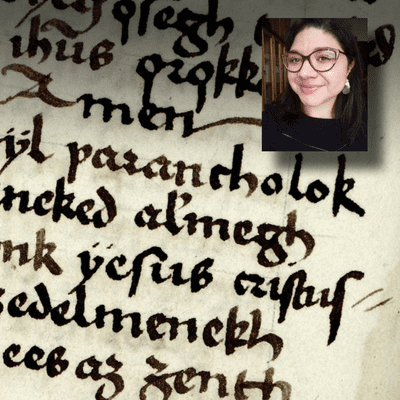 ihus
Amen
ÿl parancholok
neked al'megh
nk ÿesus cristus
edelmenekh
ees az zenth